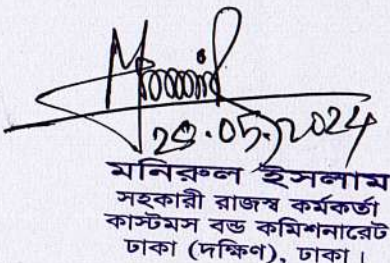 29.05.2024
মনিরুল ইসলাম
সহকারী রাজস্ব কর্মকর্তা
কাস্টমস বন্ড কমিশনারেট
ঢাকা (দক্ষিণ), ঢাকা।